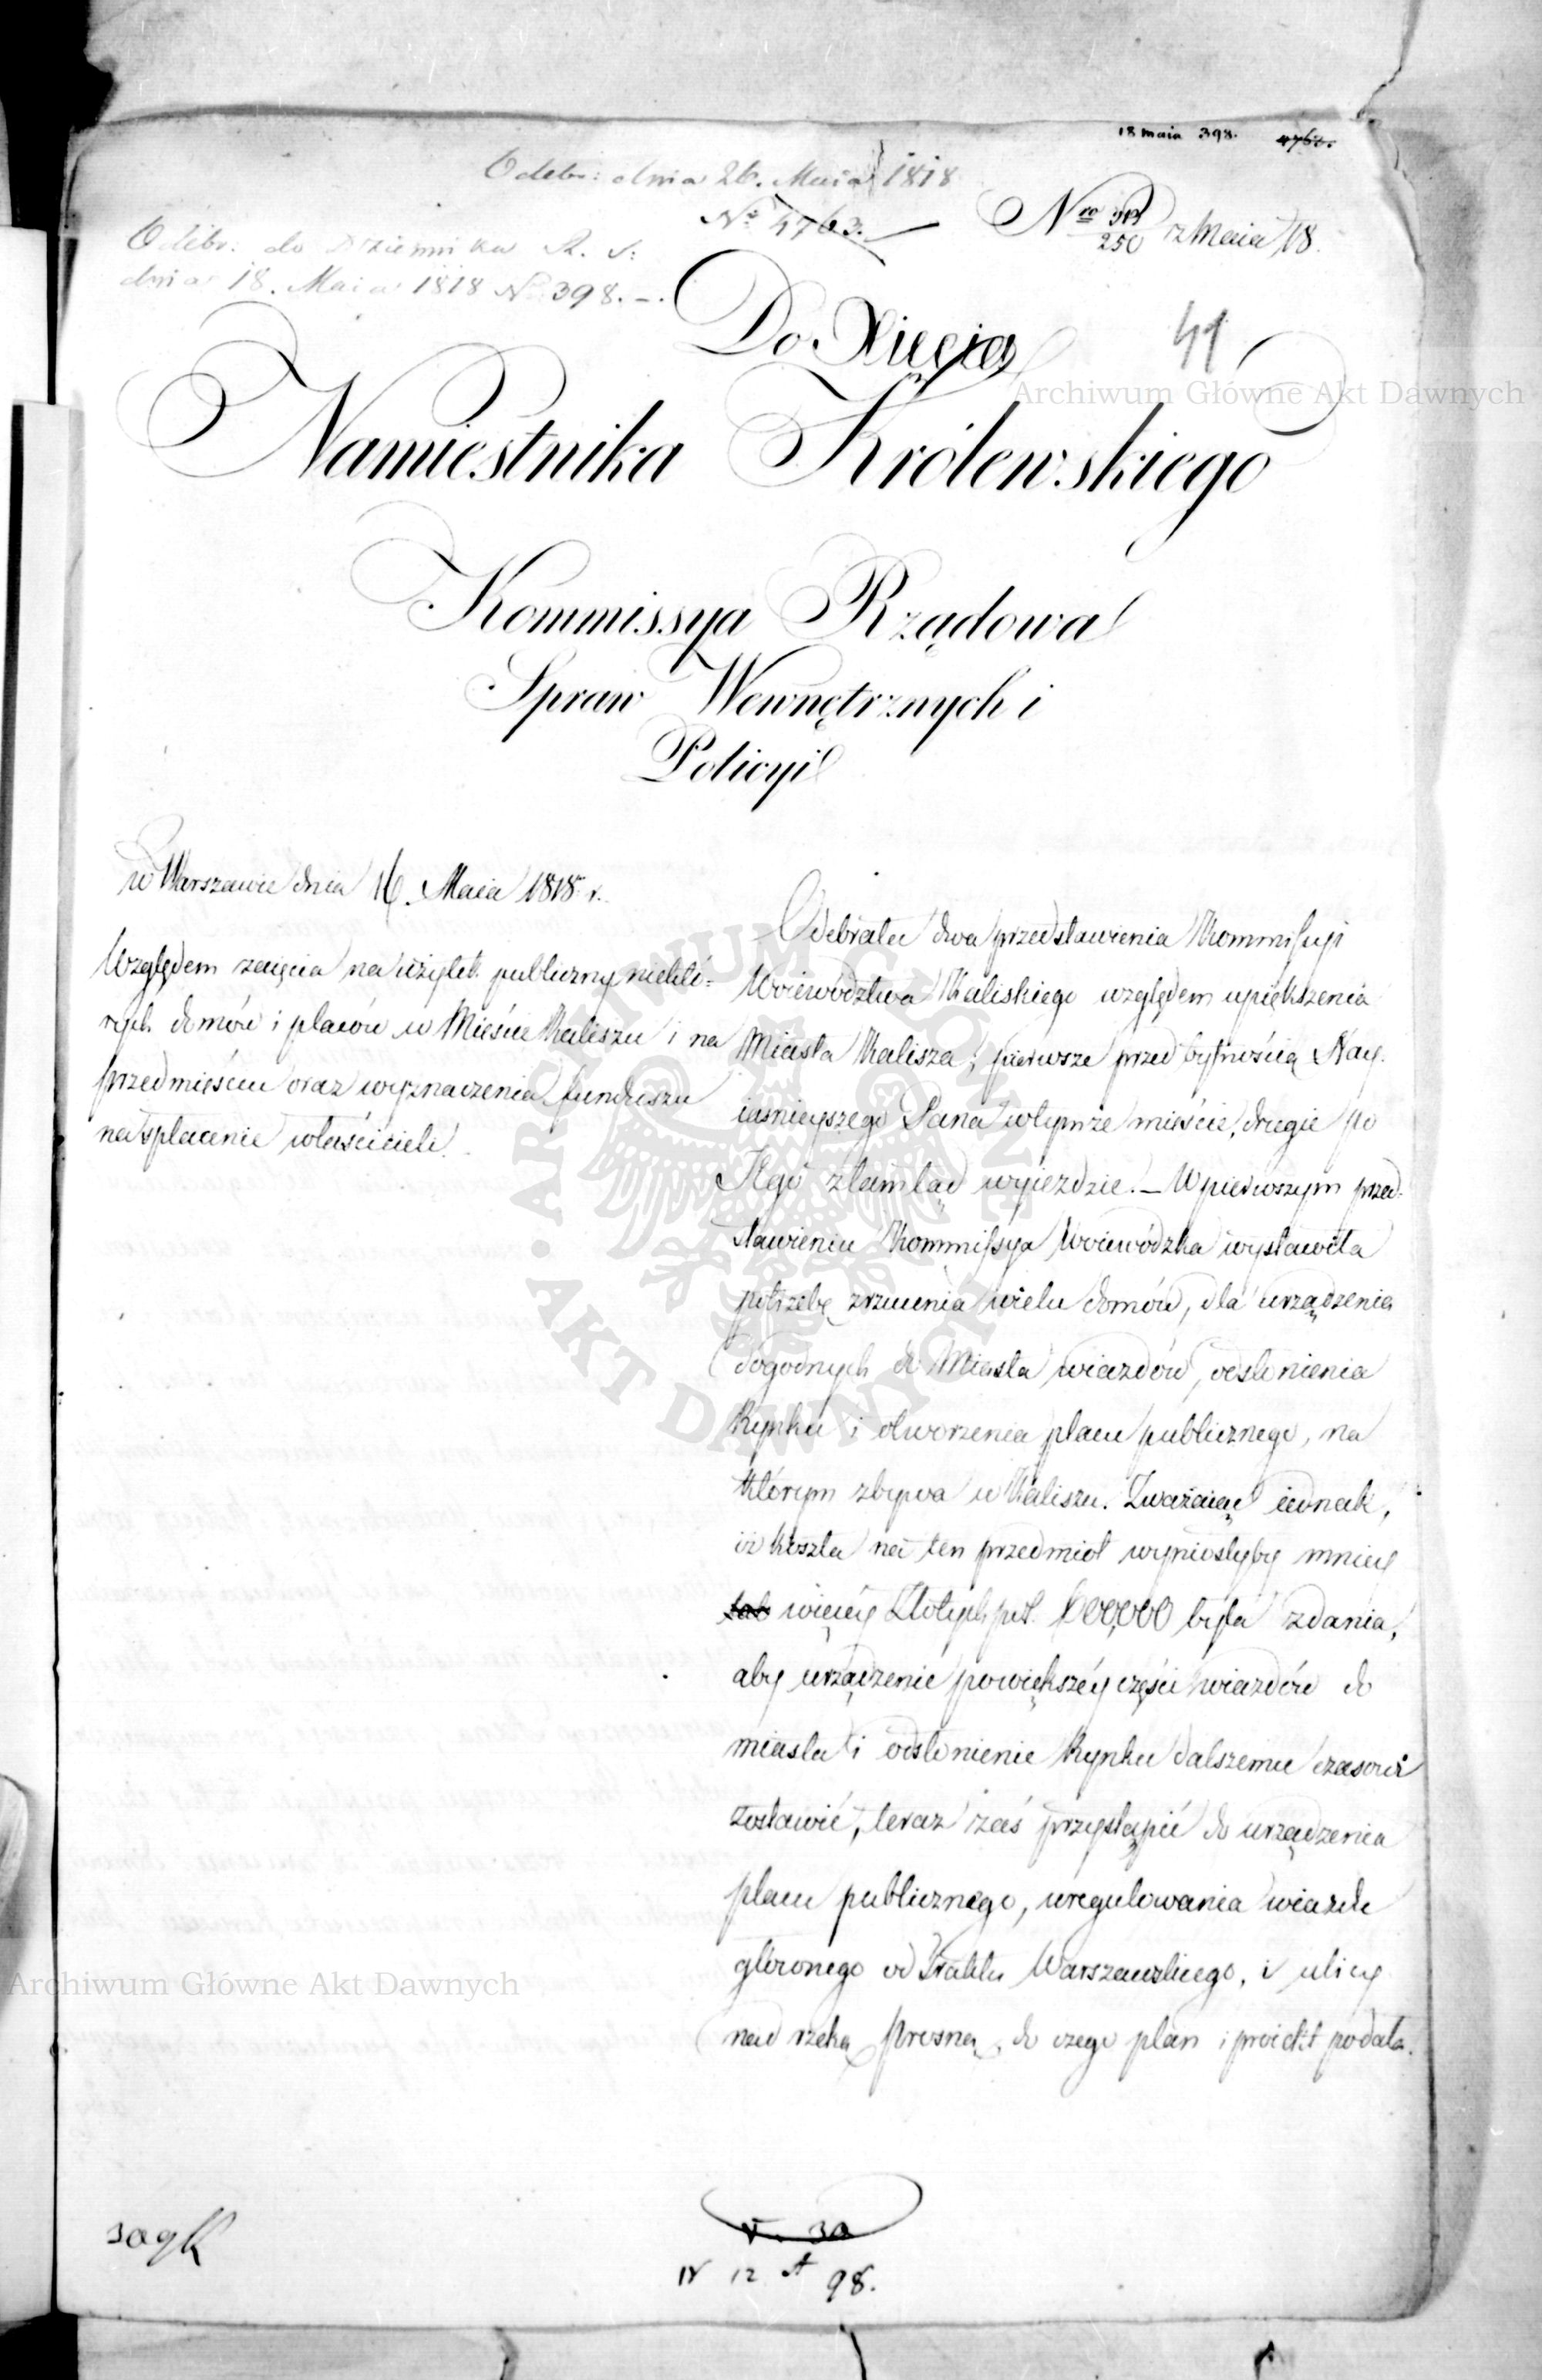 18 maia 398. 4763.
Odebr: dnia 26. Maia 1818
Nº 4763.
Nro 250 z Maia 18.
Odebr: do Dziennika R. S.
dnia 18. Maia 1818 No 398. –.
Do Xięcia
41
Archiwum Główne Akt Dawnych
Namiestnika Królewskiego
Kommissya Rządowa
Spraw Wewnętrznych i
Policyi
w Warszawie dnia 16. Maia 1818 r.
Względem zaięcia na użytek publiczny niektó=
rych domów i placów w Mieście Kaliszu i na
przedmieściu oraz wyznaczenia funduszu
na spłacenie właścicieli.
Odebrała dwa przedstawienia Kommissyi
Woiewództwa Kaliskiego względem upiększenia
Miasta Kalisza; pierwsze przed bytnością Nay-
iaśnieyszego Pana w tymże mieście, drugie po
Jego ztamtąd wyieździe. – W pierwszym przed-
stawieniu Kommissya Woiewódzka wystawiła
potrzebę zrzucenia wielu domów, dla urządzenia
dogodnych do Miasta wiazdów, odsłonienia
Rynku i otworzenia placu publicznego, na
którym zbywa w Kaliszu. Zważaiąc iednak,
iż koszta na ten przedmiot wyniosłyby mniey
lub więcéy Złotych pol. 600,000 była zdania,
aby urządzenie powiększéy części wiazdów do
miasta i odsłonienie Rynku dalszemu czasowi
zostawić, teraz zaś przystąpić do urządzenia
placu publicznego, uregulowania wiazdu
głównego od Traktu Warszawskiego, i ulicy
nad rzeką Prosną, do czego plan i proiekt podała.
ARCHIWUM GŁÓWNE AKT DAWNYCH
Archiwum Główne Akt Dawnych
V. 30
IV 12 A 98.